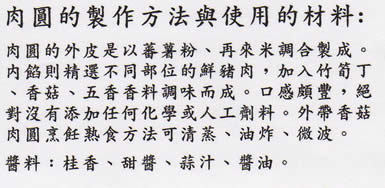 肉圓的製作方法與使用的材料:
肉圓的外皮是以蕃薯粉、再來米調合製成。
內餡則精選不同部位的鮮豬肉，加入竹筍丁
、香菇、五香香料調味而成。口感頗豐，絕
對沒有添加任何化學或人工劑料。外帶香菇
肉圓烹飪熟食方法可清蒸、油炸、微波。
醬料：桂香、甜醬、蒜汁、醬油。